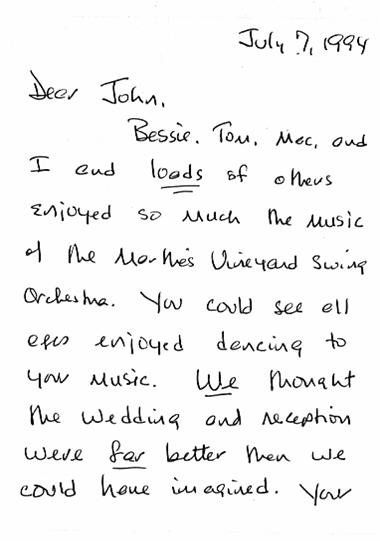 July 7, 1994
Dear John,
Bessie, Tom, Mac, and
I and loads of others
enjoyed so much the music
of the Martha's Vineyard Swing
Orchestra. You could see all
ages enjoyed dancing to
your music. We thought
the wedding and reception
were far better than we
could have imagined. Your